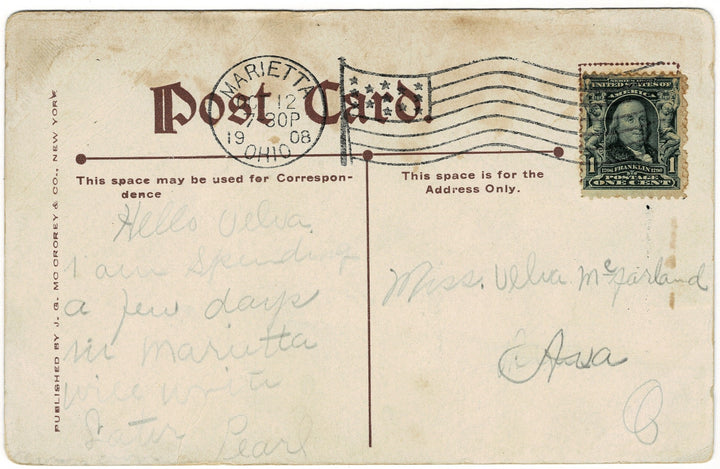 Post Card.
MARIETTA
12
7-30P
19 08
OHIO
UNITED STATES OF
1 1
FRANKLIN
POSTAGE
ONE CENT
This space may be used for Correspon-
dence
This space is for the
Address Only.
PUBLISHED BY J. G. MC CROREY & CO., NEW YORK
Hello Velva
I am Spending
a few days
in Marietta
will write
Later Pearl
Miss. Velva McFarland
Ava
O